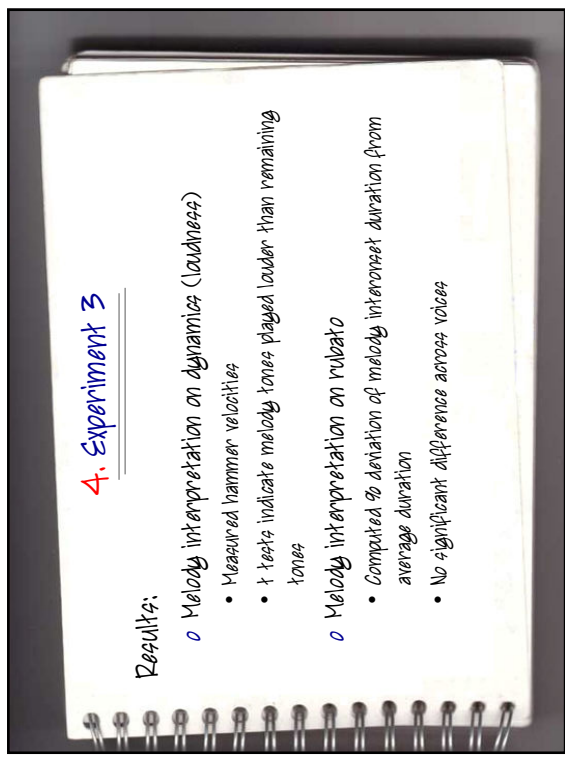 4. Experiment 3
Results:
o Melody interpretation on dynamics (loudness)
• Measured hammer velocities
• t tests indicate melody tones played louder than remaining
tones
o Melody interpretation on rubato
• Computed % deviation of melody interonset duration from
average duration
• No significant difference across voices